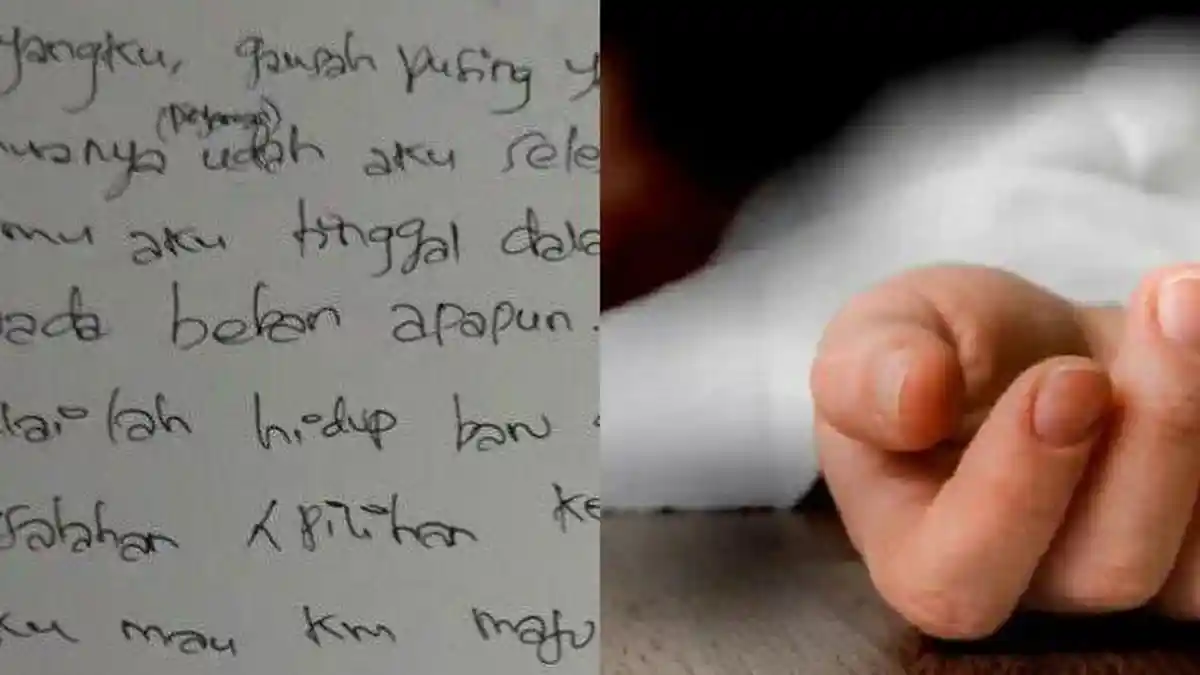 yangku, gausah pusing y
(Pinjaman)
uanya udah aku sele
mu aku tinggal dala
ada beban apapun.
lai lah hidup baru
salahan & pilihan ke
ku mau km maju